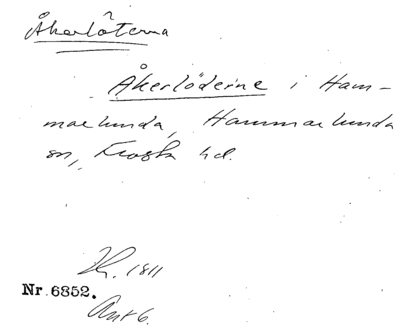 Åkerlöterna
Åkerlöderne i Ham-
marlunda, Hammarlunda
sn, Frosta hd.
Lk. 1811
Nr 6852.
Akt 6.